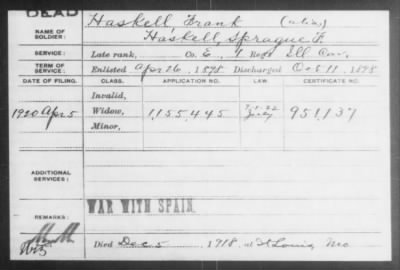 DEAD
NAME OF SOLDIER: Haskell, Frank (alias)
Haskell, Sprague F.
SERVICE: Late rank, Co. E, 1 Regt Ill Cav.
TERM OF SERVICE: Enlisted Apr. 26, 1898 Discharged Oct 11, 1898
DATE OF FILING. CLASS. APPLICATION NO. LAW CERTIFICATE NO.
Invalid,
1920 Apr 5 Widow, 1,155,445 951,137
Minor,
ADDITIONAL SERVICES:
WAR WITH SPAIN.
REMARKS:
Died Dec 5, 1918, at St Louis, Mo